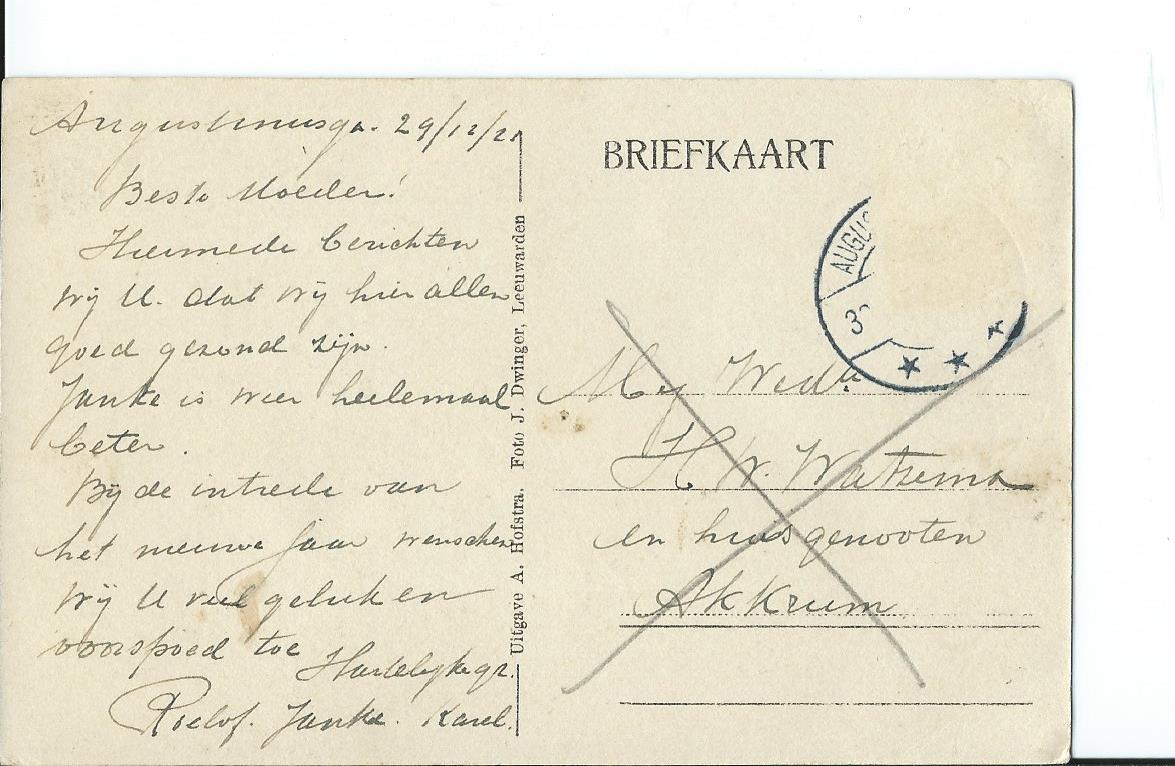 Augustinusga. 29/12/21
Beste Moeder!
Hiermede berichten
wij U. dat wij hier allen
goed gezond zijn.
Janke is weer heelemaal
beter.
Bij de intrede van
het nieuwe Jaar wenschen
wij U veel geluk en
voorspoed toe
Hartelijke gr.
Roelof. Janke. Karel.
Uitgave A. Hofstra. Foto J. Dwinger, Leeuwarden
BRIEFKAART
AUGUS
3
Mej Wed
H. W. Watzema
en huisgenooten
Akkrum